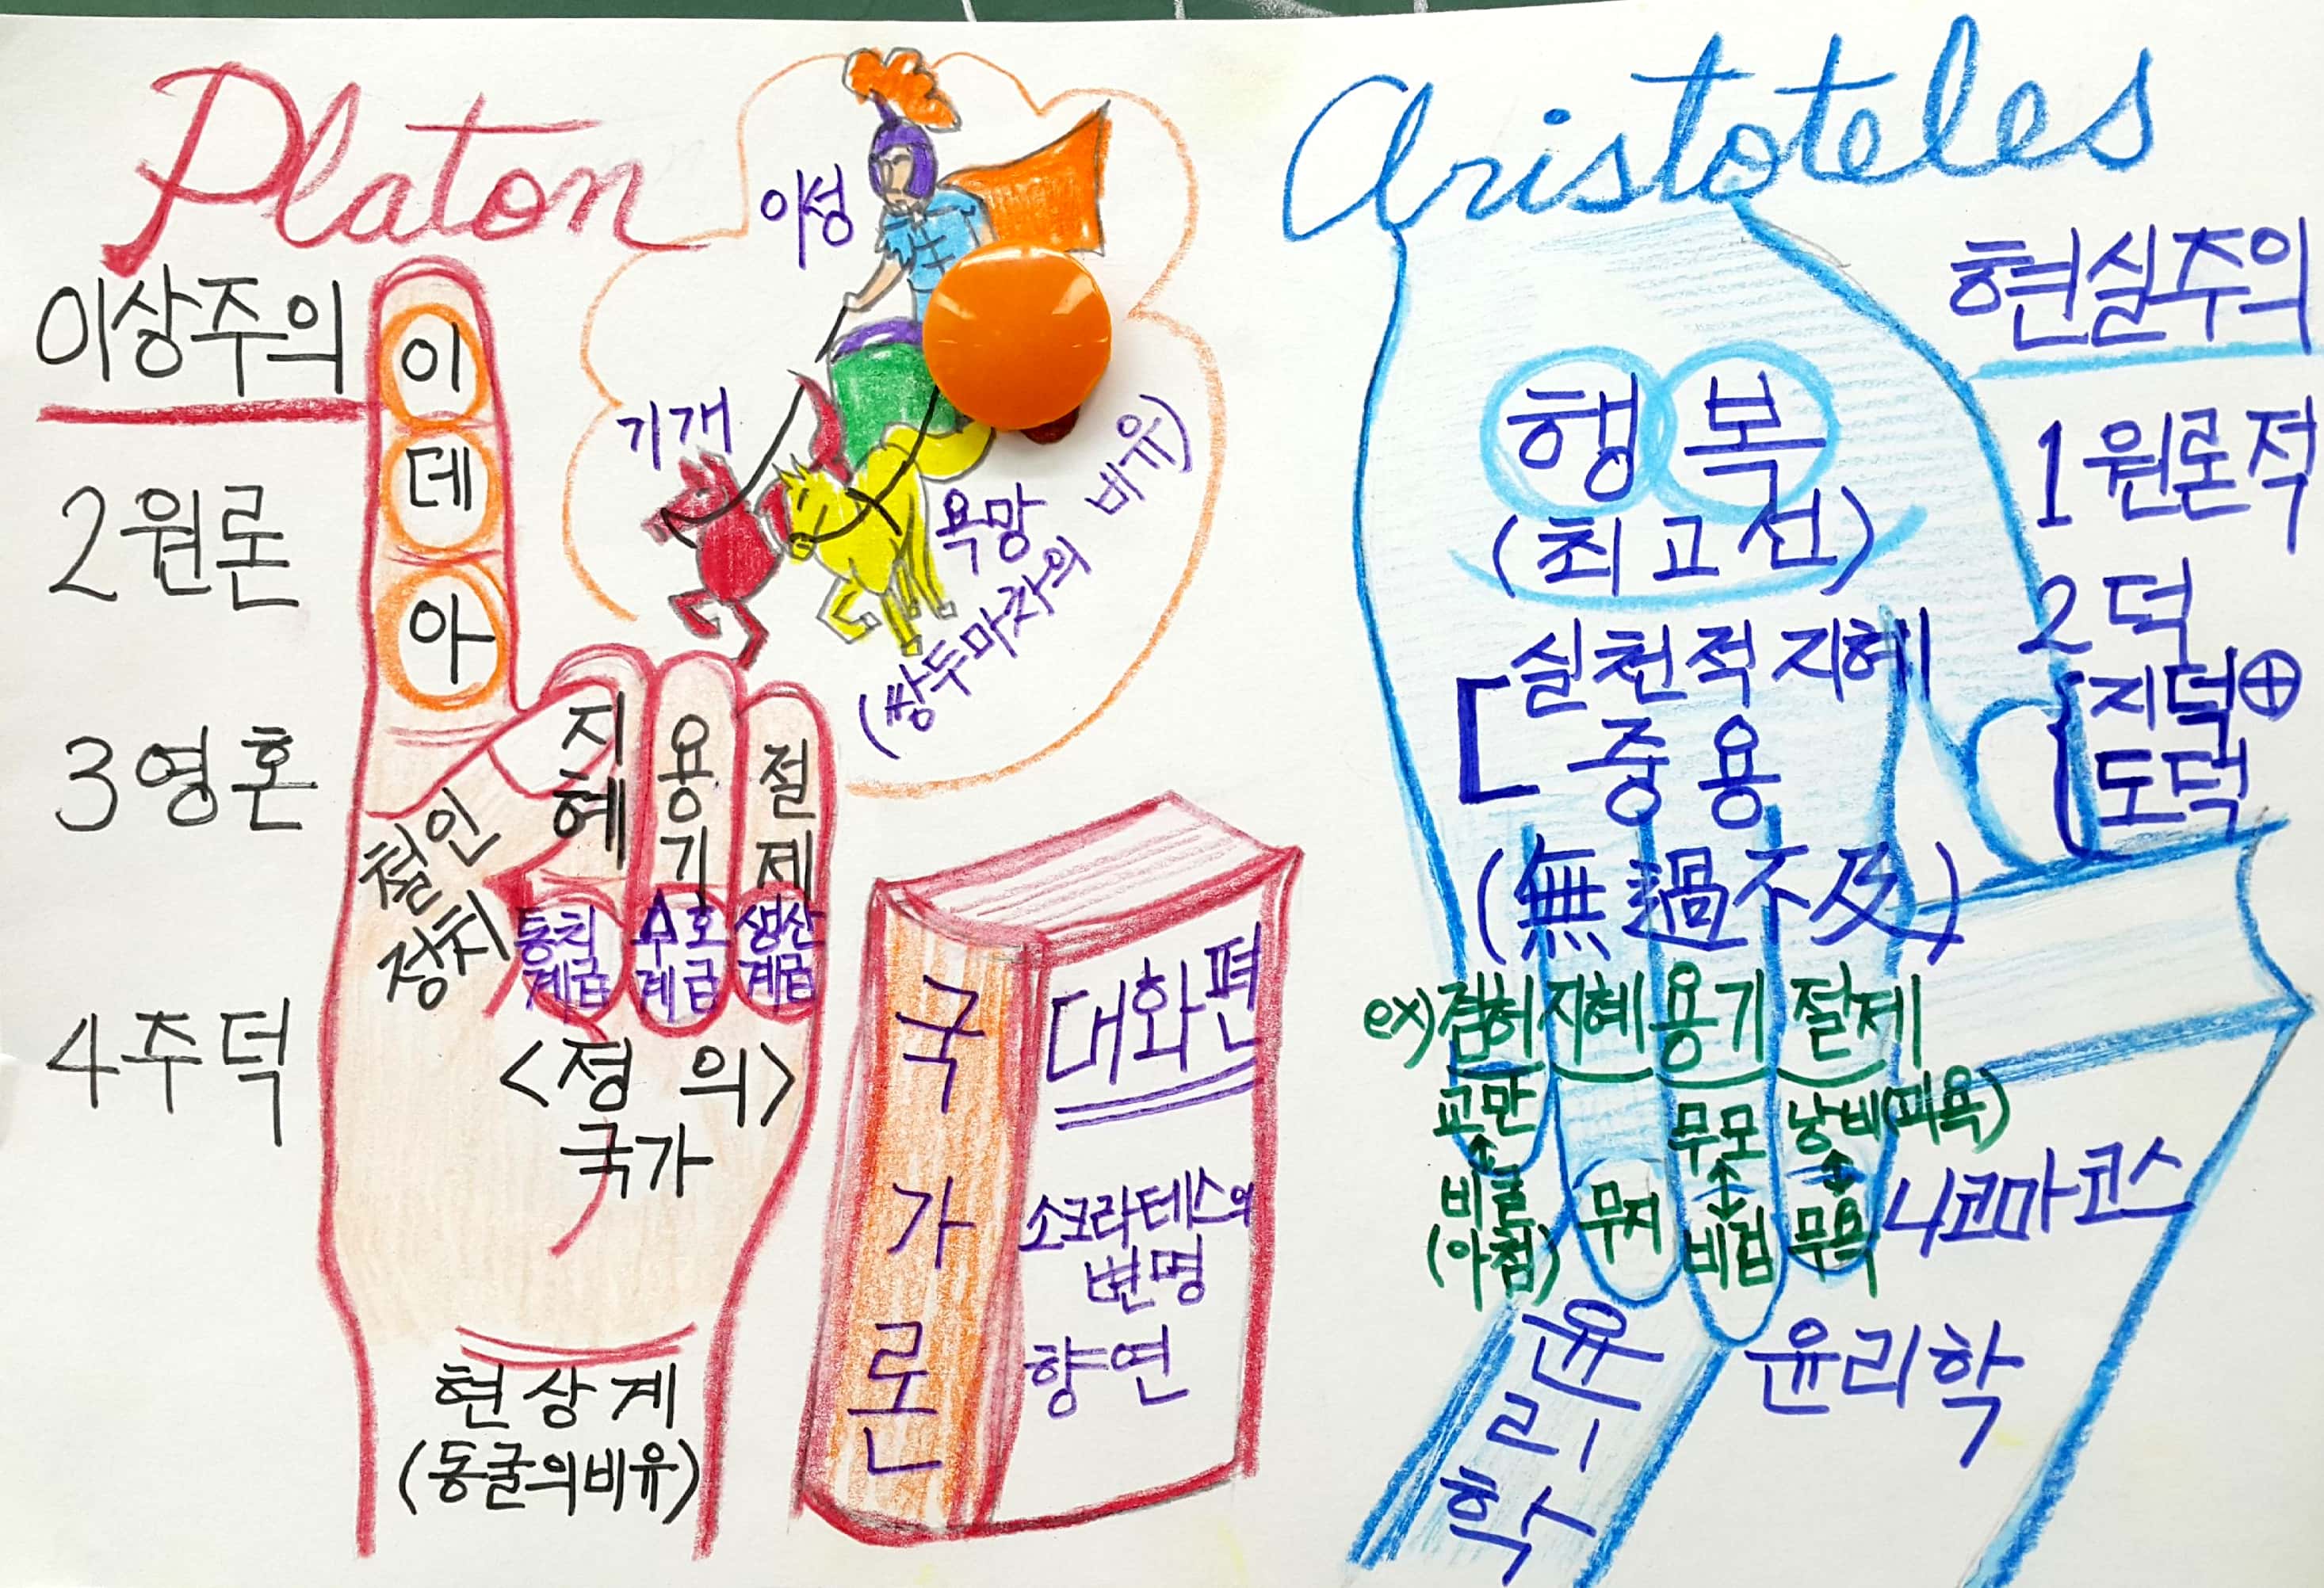 Platon
이상주의
2원론
3영혼
4주덕
이
데
아
지혜
용기
절제
철인
정치
통치
계급
수호
계급
생산
계급
<정의>
국가
현상계
(동굴의비유)
이성
기개
욕망
(쌍두마차의 비유)
국가론
대화편
소크라테스의
변명
향연
Aristoteles
현실주의
1원론적
2덕
지덕⊕
도덕
행복
(최고선)
실천적지혜
중용
(無過不及)
ex) 겸허 지혜 용기 절제
교만 무모 낭비(쾌욕)
비굴 무지 비겁 무욕
(아첨)
니코마코스
윤리학
윤리학